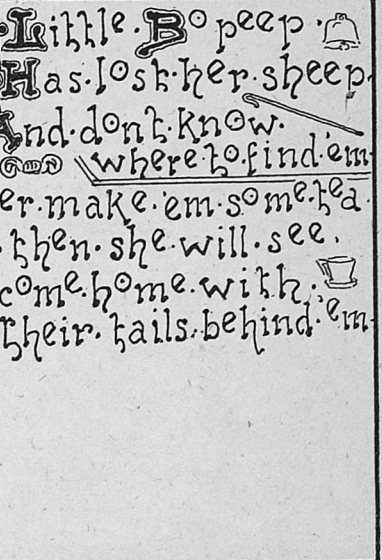 Little Bo peep
Has lost her sheep
And don't know
where to find 'em
er make 'em some tea
then she will see
come home with
their tails behind 'em